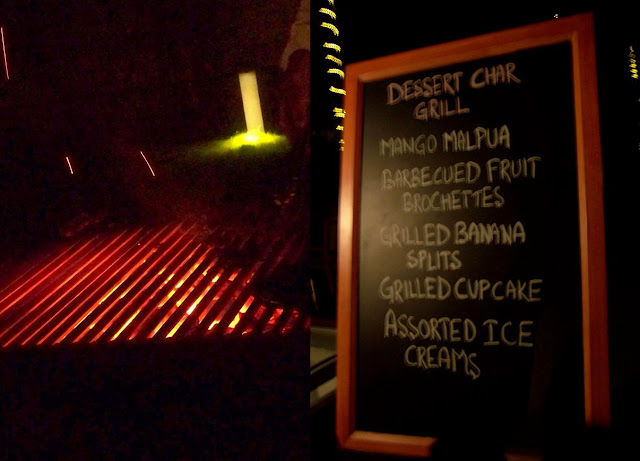 DESSERT CHAR
GRILL
MANGO MALPUA
BARBECUED FRUIT
BROCHETTES
GRILLED BANANA
SPLITS
GRILLED CUPCAKE
ASSORTED ICE
CREAMS